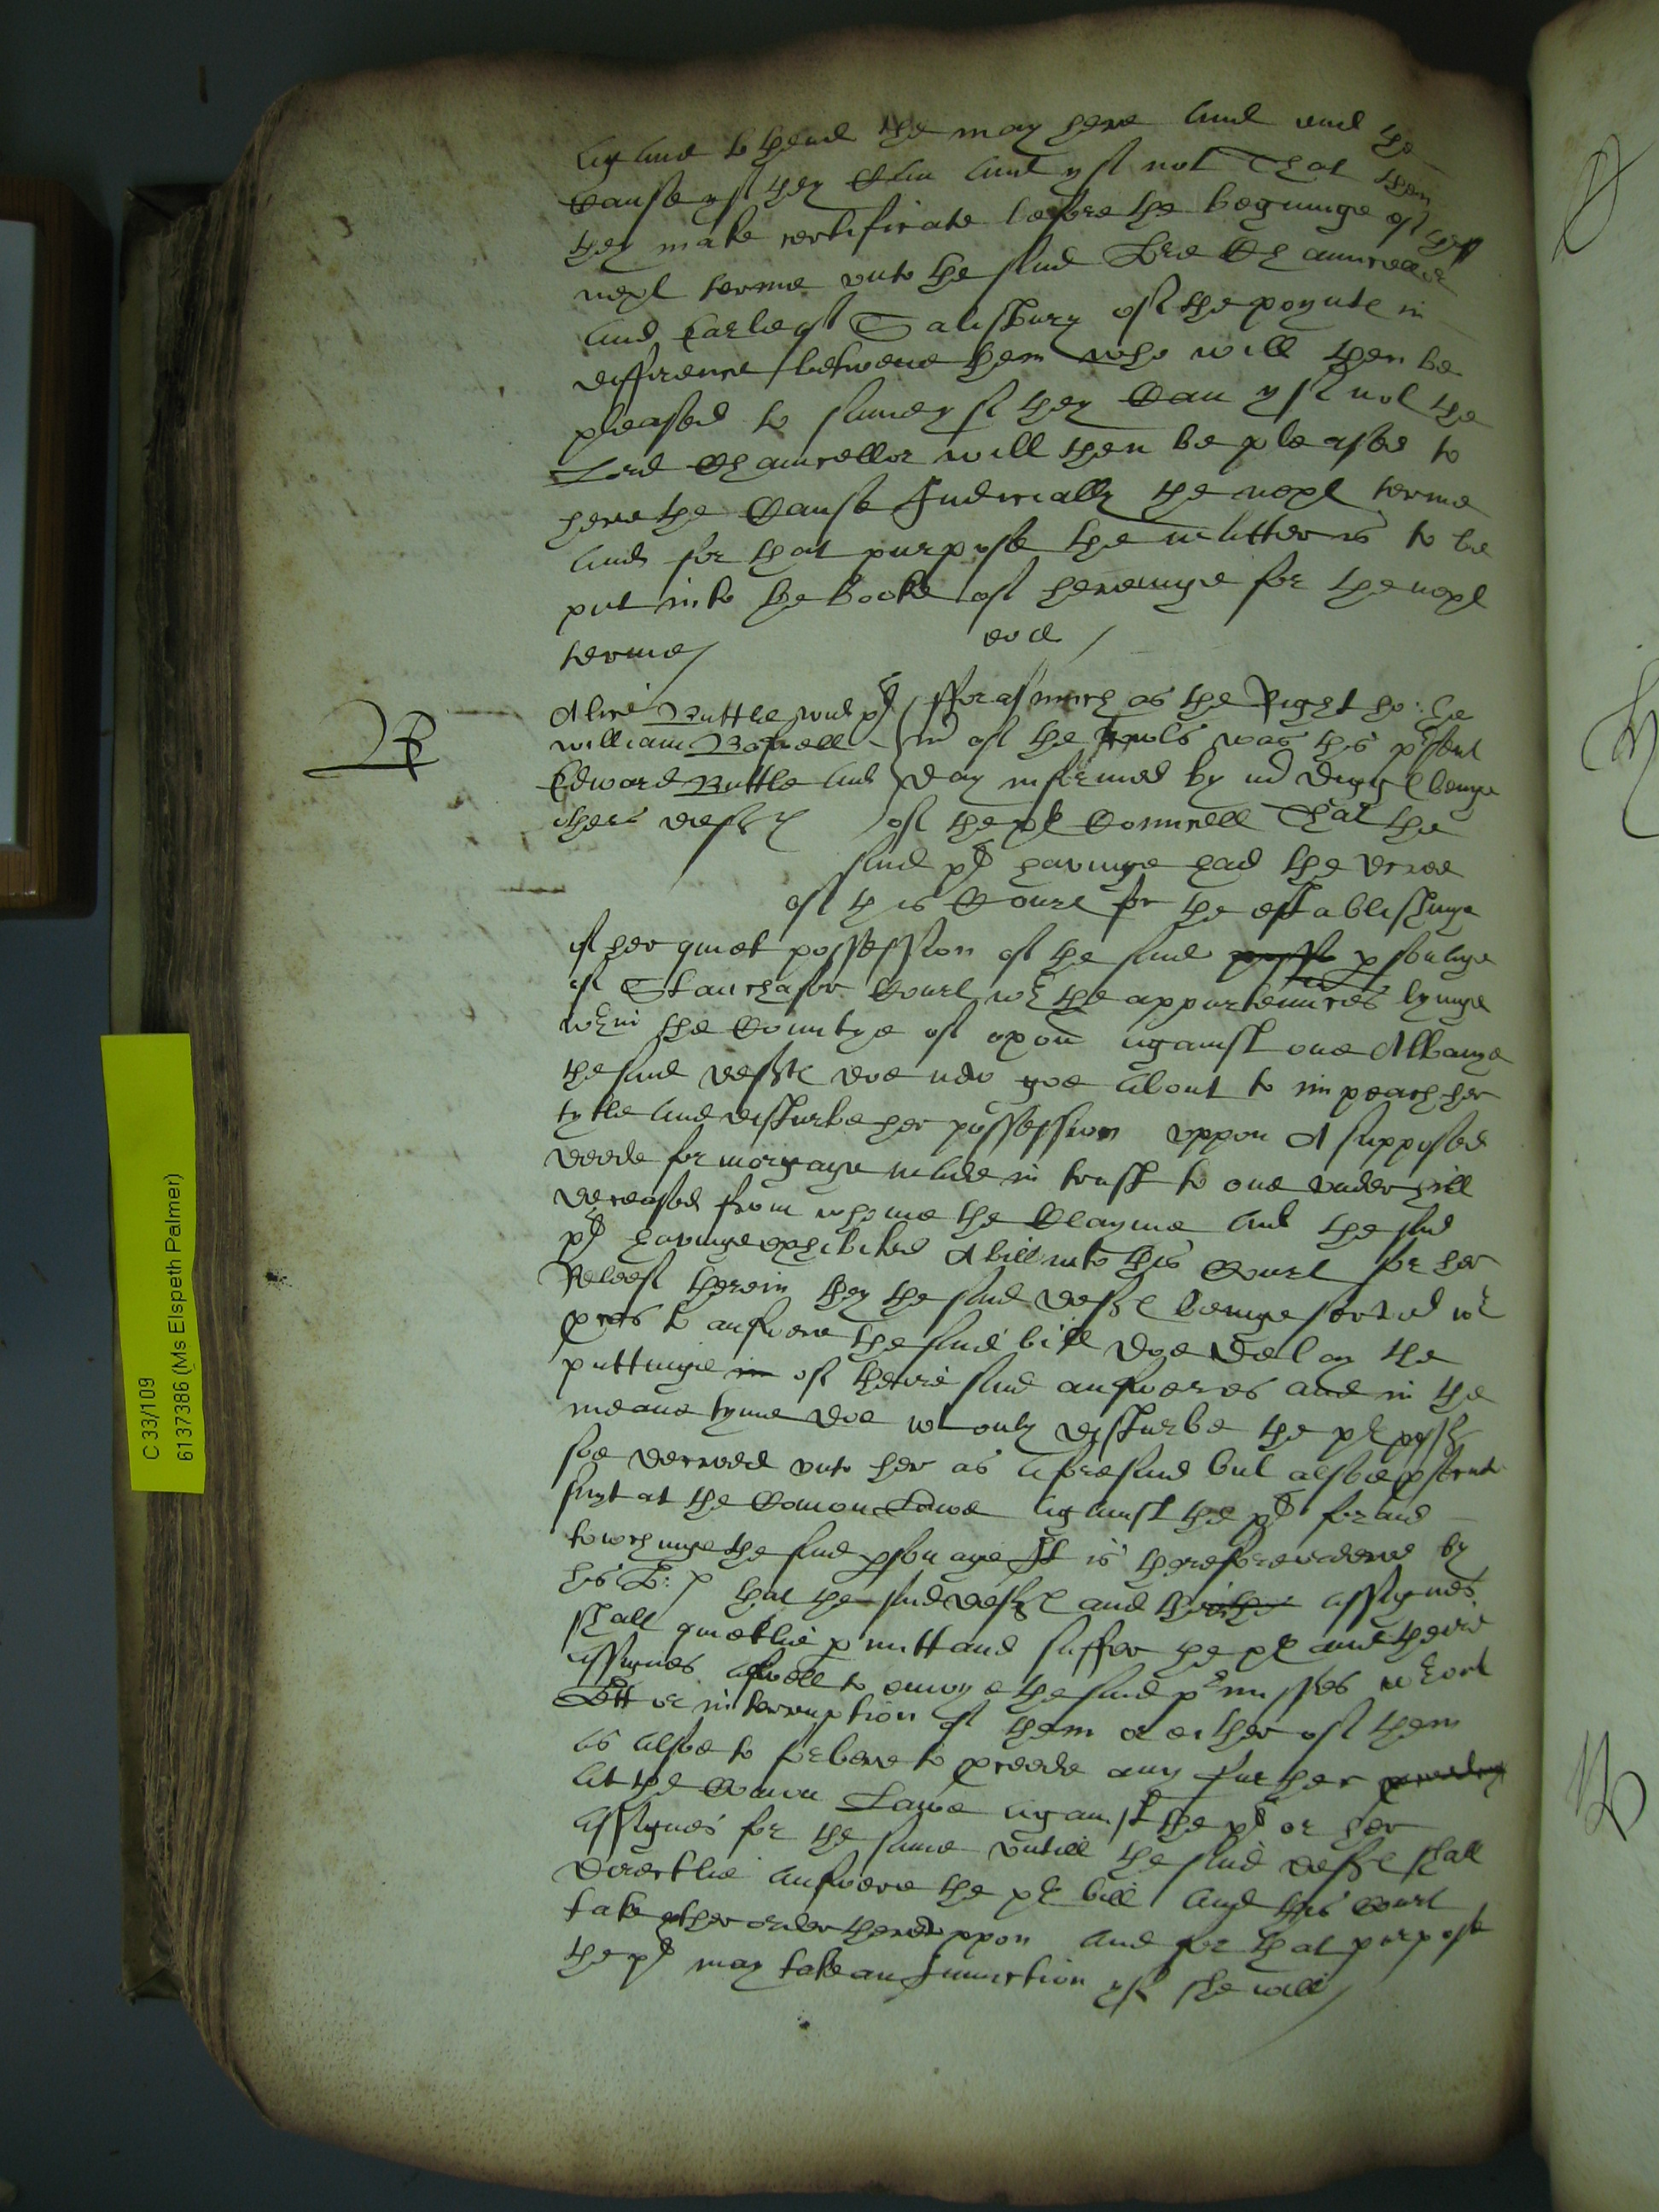 againe to thend the may heare and end the
Cause yf they Can and yf not That then
they make certificate before the begininge of the
next terme vnto the said Lord Chauncellor
and Earle of Salisbury of the poynte in
difference betwene them who will then be
pleased to end yf they Can yf not the
Lord Chauncellor will then be pleased to
heare the Cause Judicially the next terme
and for that purpose the matter is to be
put into the booke of hearinge for the next
terme /
R
Alice Buttle wid pl
william Boswell
Edward Buttle and
others defts
fforasmuch as the Right ho: the
mr of the Rouls was this pſent
day informed by mr beinge
of the pl Councell That the
said pl havinge had the decree
of this Court for the establishinge
of her quiet possession of the said pſonage
of Court wth the appurtennces lyinge
wthin the Countye of oxon against one
the said defts doe now goe about to impeach her
tytle and disturbe her possession vppon A supposed
deede for morgage made in trust to one vnderhill
deceased from whome the Clayme and the said
pl havinge exhibited A bill into this Court for her
Releef therein they the said defts beinge served wth
pces to answere the said bill doe delay the
puttinge in of theire said answeres and in the
meane tyme doe not only disturbe the pls possn
soe decreed vnto her as aforesaid but alsoe pſecute
suyt at the Comon Lawe against the pl for and
towchinge the said pſonage It is therefore ordered by
his L:p that the said defts and assignes
shall quietlie pmitt and suffer the pl and theire
assignes aswell to enioye the said pmisses wthout
Lett or interruption of them or either of them
as alsoe to forbeare to pceede any further
at the Comon Lawe against the pl or her
assignes for the same vntill the said defts shall
directlie answere the pls bill And this Court
take other order therevppon and for that purpose
the pl may take an Iniunction yf she will /
C 33/109
6137386 (Ms Elspeth Palmer)